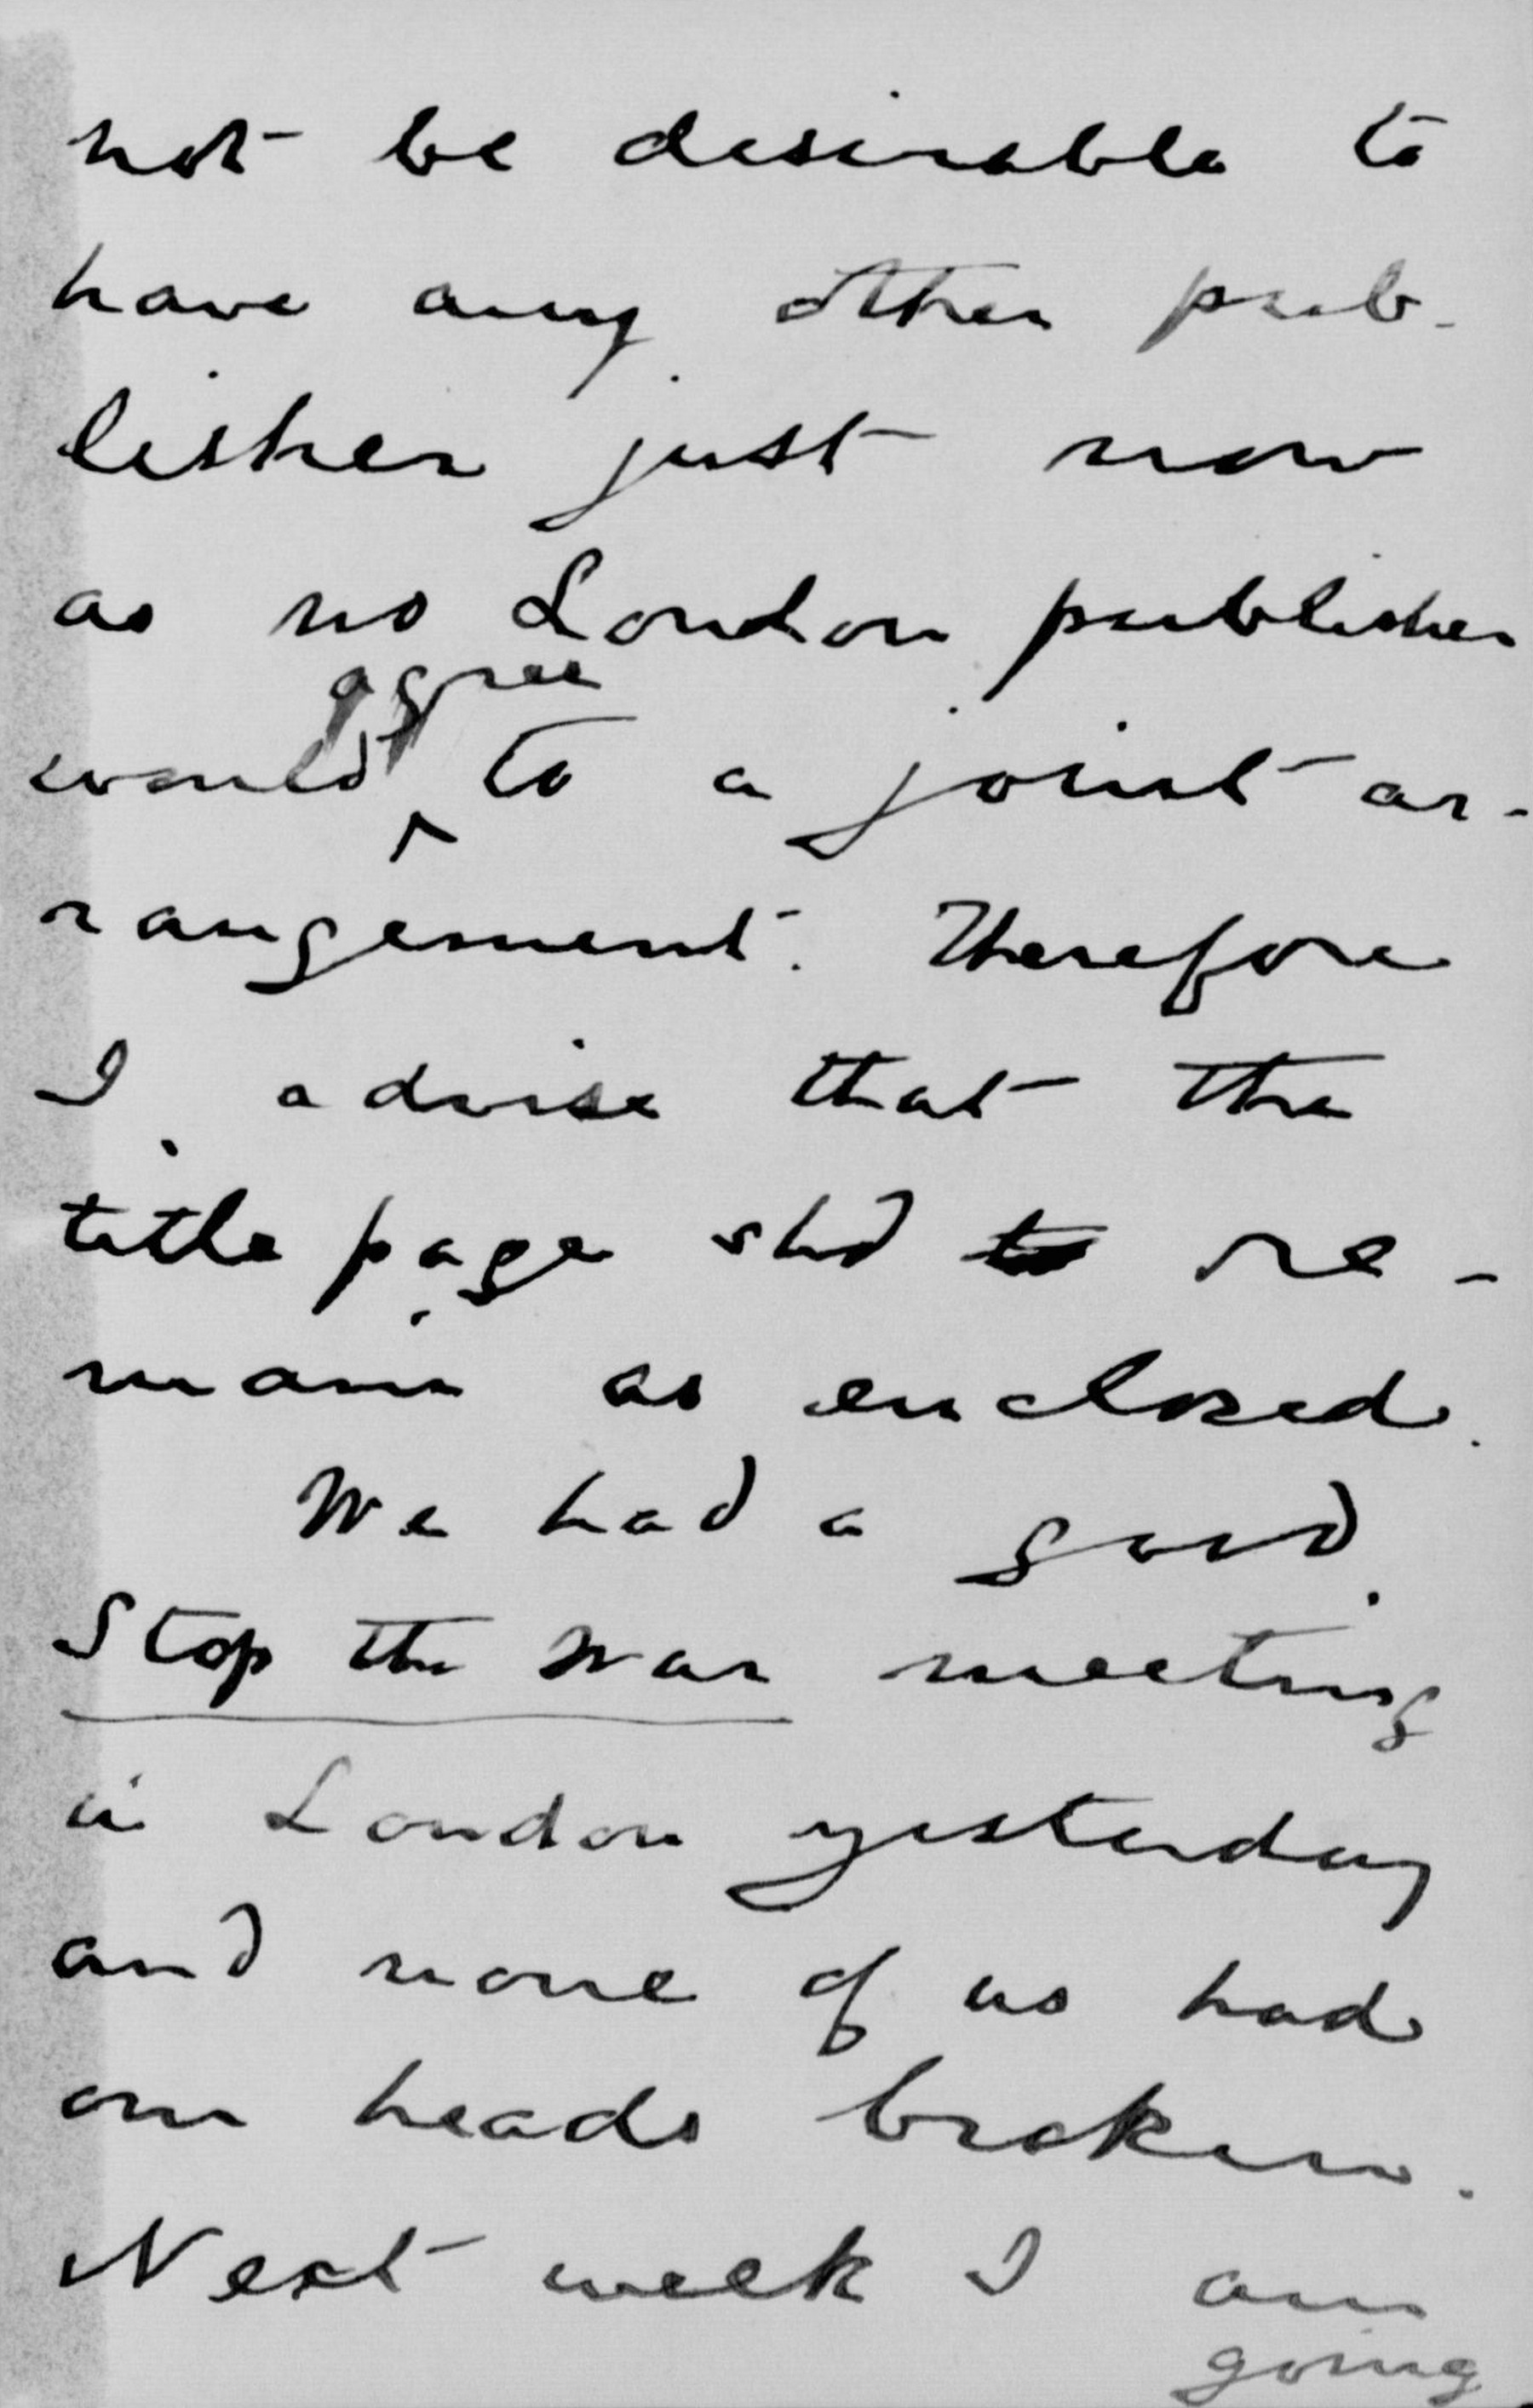 not be desirable to
have any other pub-
lisher just now
as no London publisher
agree
would to a joint ar-
rangement. Therefore
I advise that the
title page shd to re-
main as enclosed.
We had a good
Stop the War meeting
in London yesterday
and none of us had
our heads broken.
Next week I am
going